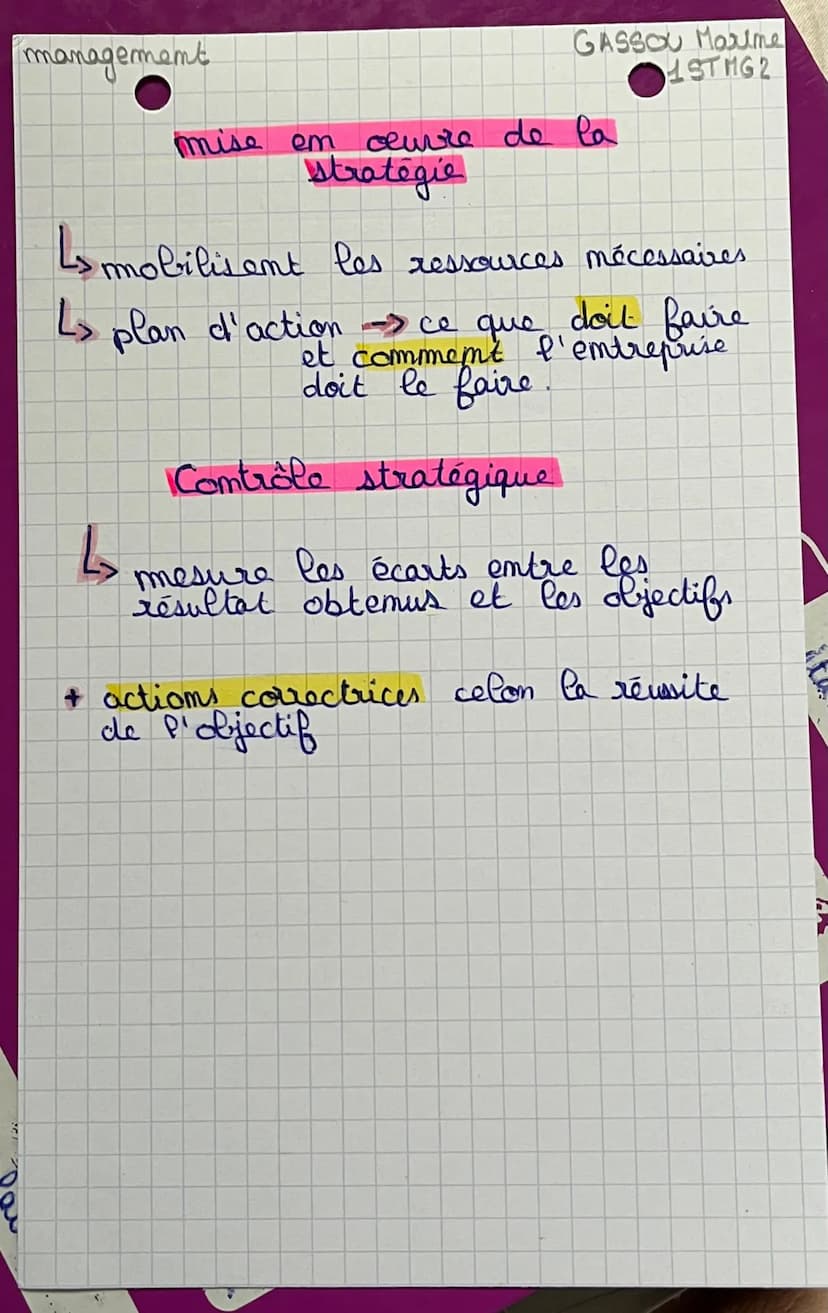 management
GASSOU Maxime
1STMG2
mise en oeuvre de la
stratégie
↳ mobilisent les ressources nécessaires
↳ plan d'action → ce que doit faire
et comment l'entreprise
doit le faire.
Contrôle stratégique
↳ mesure les écarts entre les
résultat obtenus et les objectifs
+ actions correctrices celon la réussite
de l'objectif